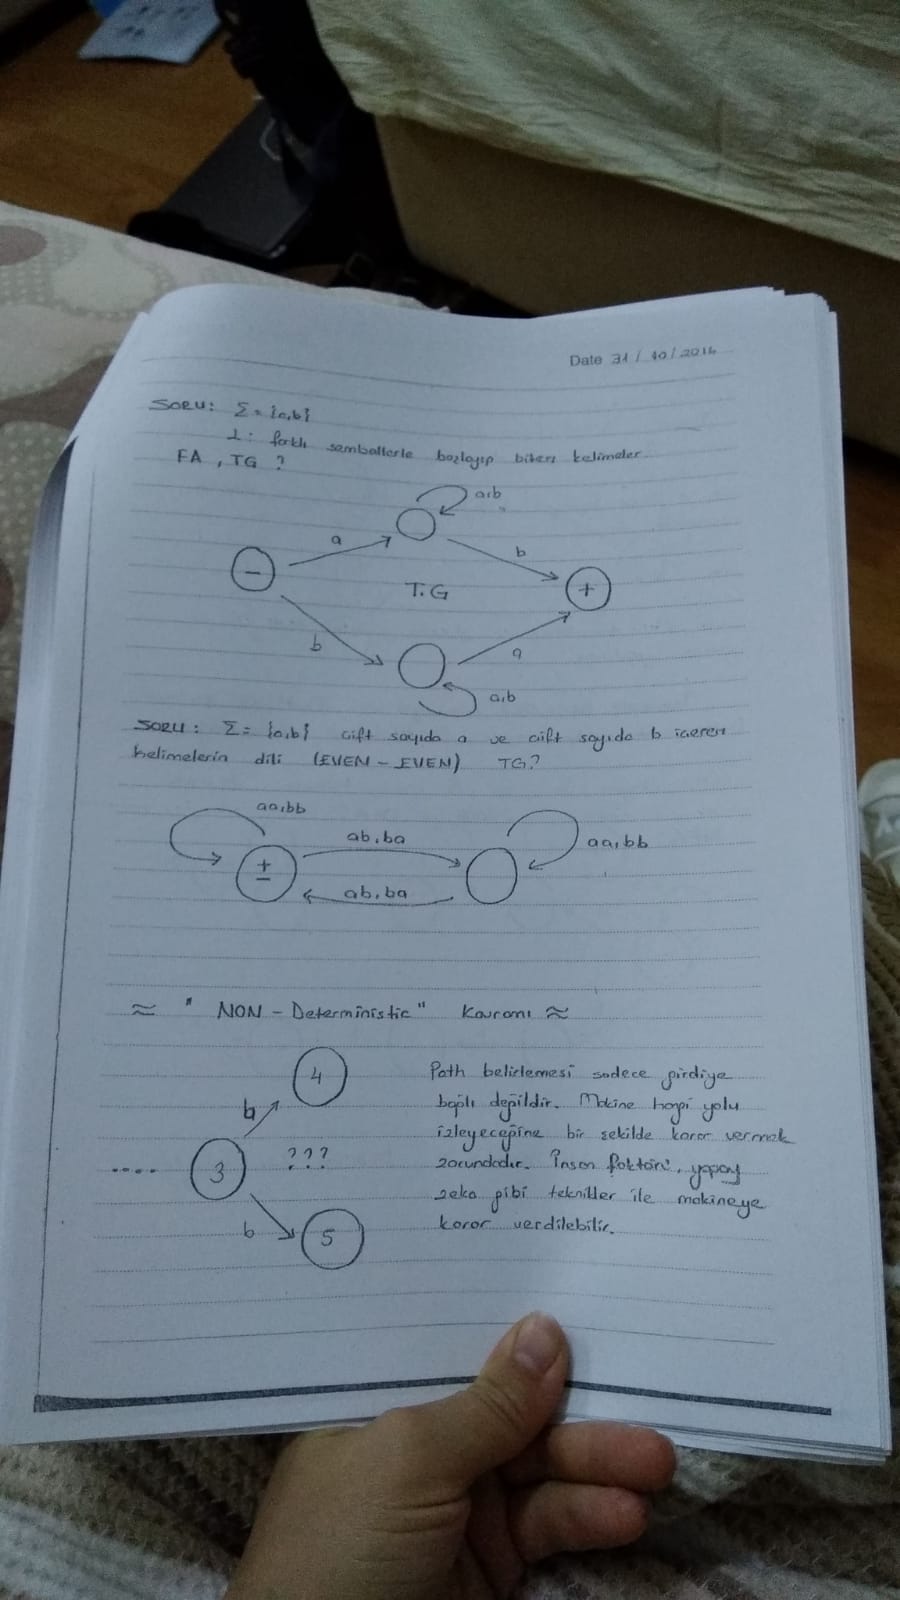 Date 31 / 10 / 2016
SORU: Σ = {a,b}
L: farklı sembollerle başlayıp biten kelimeler
FA, TG ?
a,b
a
b
-
T.G
+
b
a
a,b
SORU: Σ = {a,b} çift sayıda a ve çift sayıda b içeren
kelimelerin dili (EVEN - EVEN) TG?
aa,bb
ab,ba
aa,bb
±
ab,ba
≈ " NON - Deterministic" Kavramı ≈
4
Path belirlemesi sadece girdiye
b
bağlı değildir. Makine hangi yolu
izleyeceğine bir şekilde karar vermek
???
.... 3
zorundadır. İnsan faktörü, yapay
zeka gibi teknikler ile makineye
b
5
karar verdilebilir.